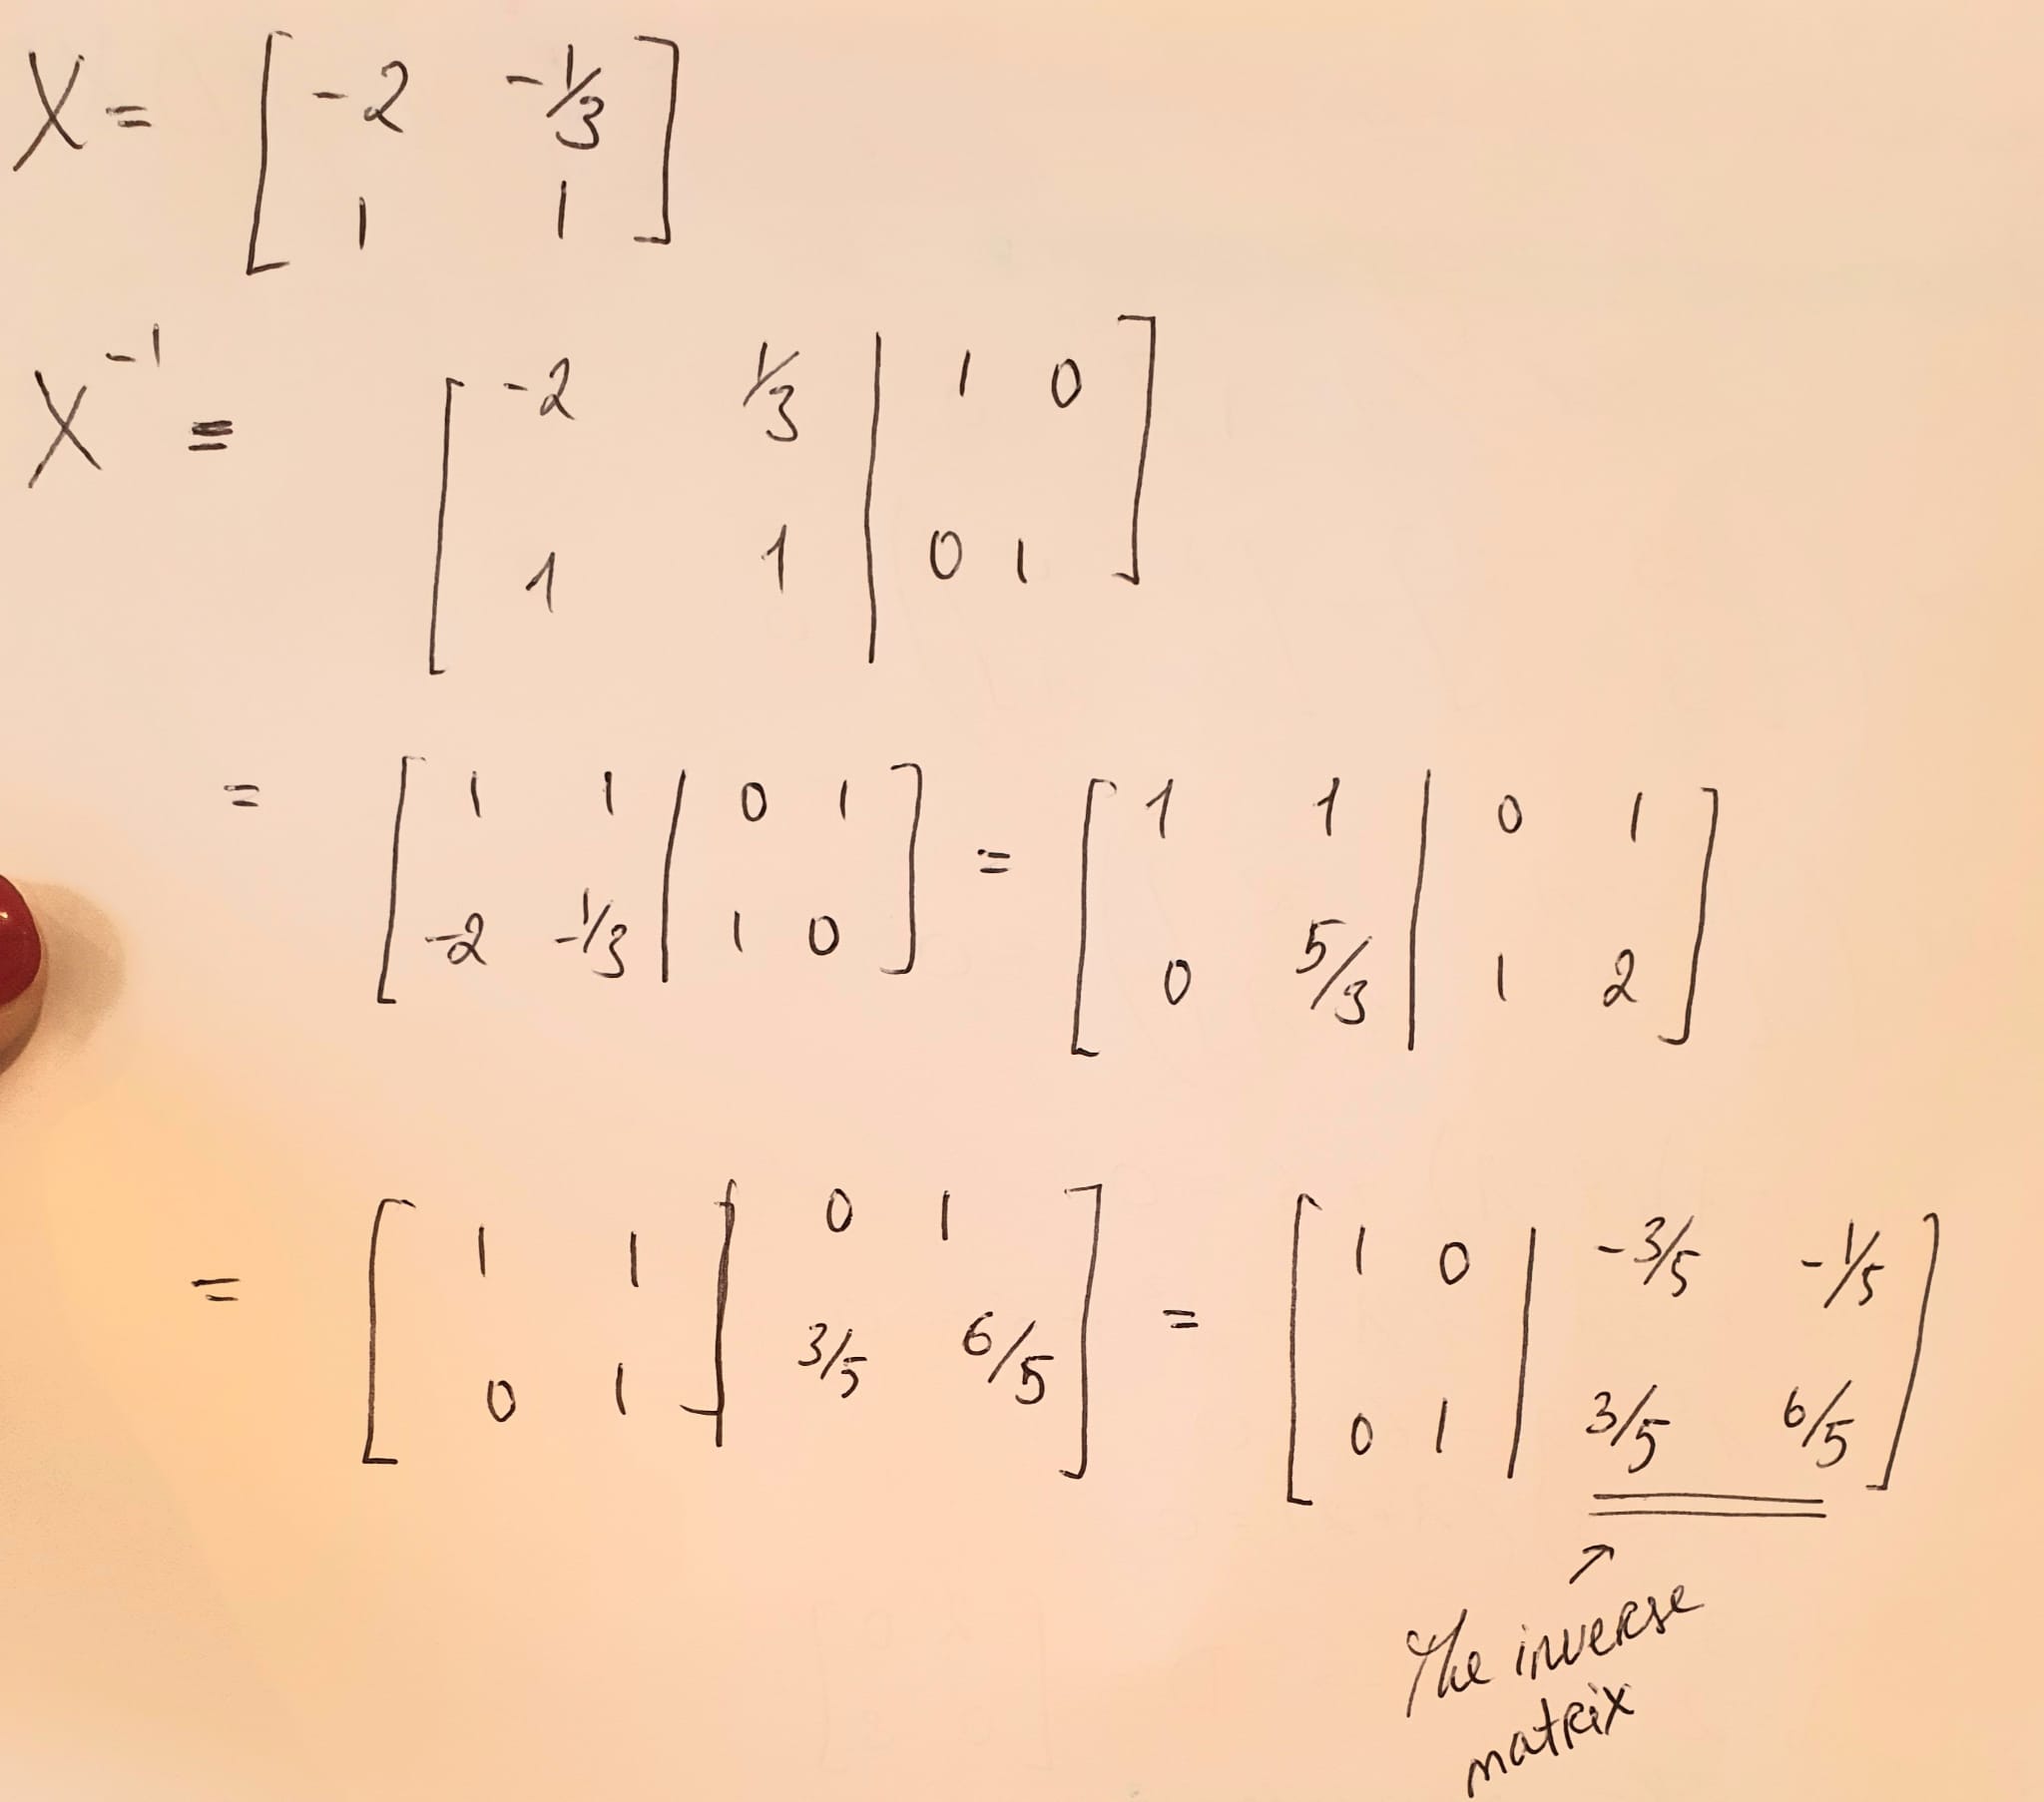 X = [ -2 -1/3 ]
[ 1 1 ]
X⁻¹ = [ -2 1/3 | 1 0 ]
[ 1 1 | 0 1 ]
= [ 1 1 | 0 1 ] = [ 1 1 | 0 1 ]
[ -2 -1/3 | 1 0 ] [ 0 5/3 | 1 2 ]
= [ 1 1 | 0 1 ] = [ 1 0 | -3/5 -1/5 ]
[ 0 1 | 3/5 6/5 ] [ 0 1 | 3/5 6/5 ]
↑
The inverse
matrix